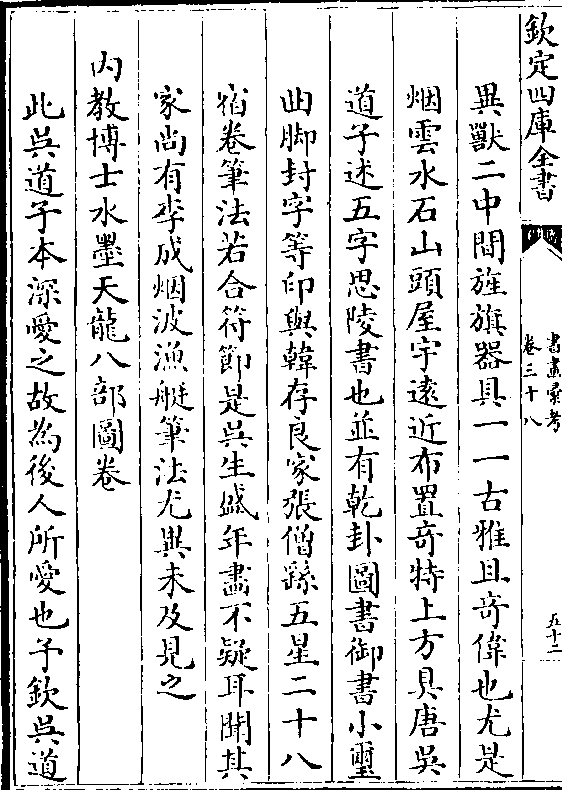 欽定四庫全書
書畫彚考
卷三十八
五十二
異獸二中間旌旗器具一一古雅且竒偉也尤是
烟雲水石山頭屋宇遠近布置竒特上方具唐吳
道子述五字思陵書也並有乾卦圖書御書小璽
曲脚封字等印與韓存良家張僧繇五星二十八
宿卷筆法若合符節是吳生盛年畫不疑耳聞其
家尚有李成烟波漁艇筆法尤異未及見之
内教博士水墨天龍八部圖卷
此吳道子本深愛之故為後人所愛也予欽吳道